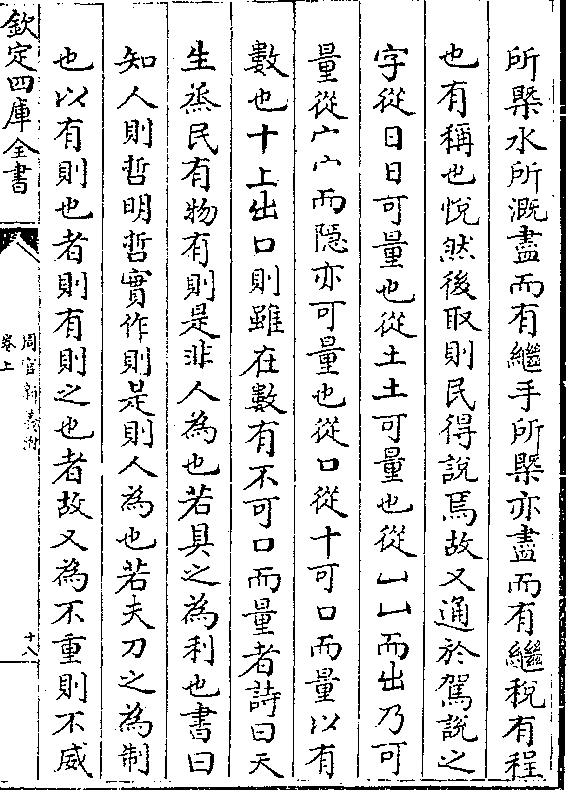 所槩水所溉盡而有繼手所槩亦盡而有繼稅有程
也有稱也悅然後取則民得說焉故又通於駕說之
字從日日可量也從土土可量也從𠃊𠃊而出乃可
量從宀宀而隱亦可量也從口從十可口而量以有
數也十上出口則雖在數有不可口而量者詩曰天
生烝民有物有則是非人為也若貝之為利也書曰
知人則哲明哲實作則是則人為也若夫刀之為制
也以有則也者則有則之也者故又為不重則不威
欽定四庫全書
周官新義附
卷上
十八